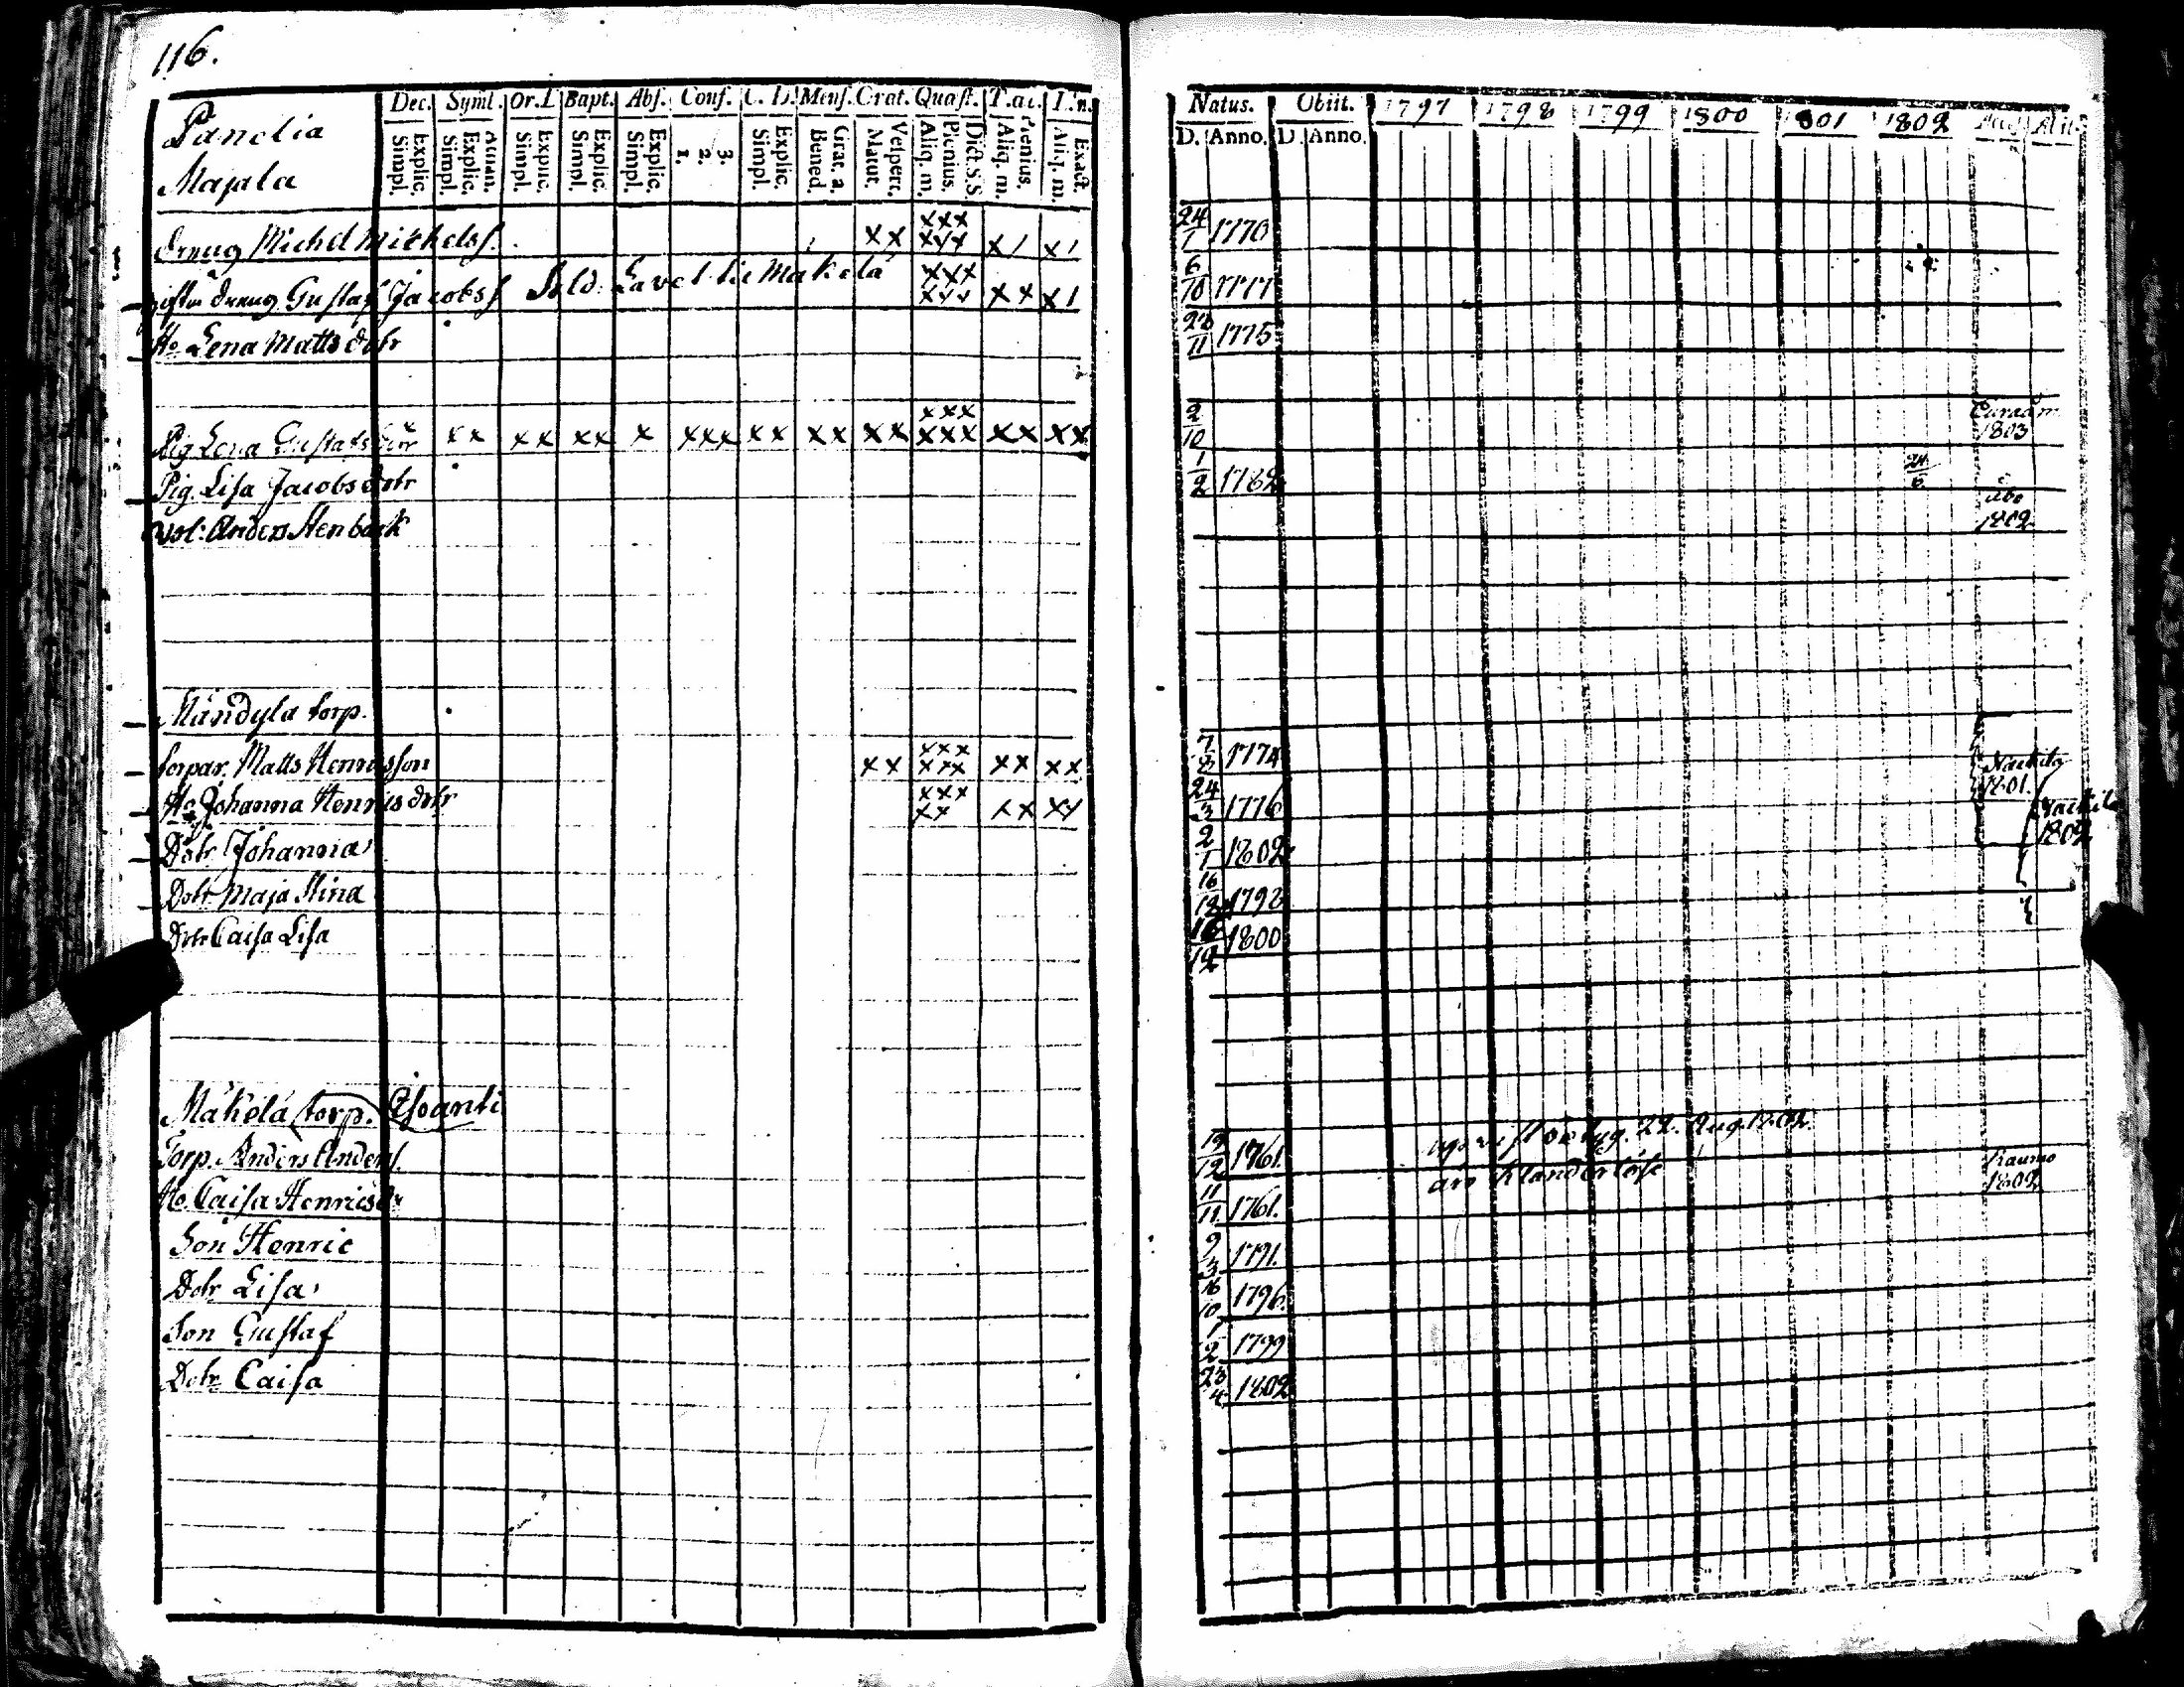 116.
Dec. Symb. Or.D Bapt. Abs. Conf. C. D. Mens. Grat. Quæst. T.æ. I.n.
Panelia
Majala
Explic. Simpl. Explic. Simpl. Explic. Simpl. Explic. Simpl. Explic. Simpl. 3. 2. 1. Explic. Simpl. Grat. a. Bened. Vesperr. Matut. Dict. s.s. Plenius. Aliq. m. Plenius. Aliq. m. Exact. Aliq. m.
Natus. Obiit. 1797 1798 1799 1800 1801 1802
D. Anno. D. Anno.
Dreng Michel Mickelss. xx xxx xxx x/ x/ 24/1 1770
gifta dreng Gustaf Jacobss Sold. Makela xxx xxx xx x/ 6/10 1777
Ho Lena Matts dotr 11 1775
Pig Lena Gustafs dotr x xx xx xx x xxx xx xx xx xxx xxx xx xx 2/10 1803
Pig. Lisa Jacobs dotr 1/2 1782
Anders Stenbäck Åbo 1802
Mändylä torp.
torpar. Matts Henricsson xx xxx xxx xx xx 1774 1801.
Ho Johanna Henrics dotr xxx xx xx xx 24/3 1776
Dotr Johanna 2/1 1802 1802
Dotr Maja Stina 16 1792
Dotr Caisa Lisa 16/12 1800
Mäkelä torp.
Torp. Anders Anders. 19/12 1761. 22. Aug. 1802.
Ho. Caisa Henricsdr 11/11 1761. äro Klanderlöse Raumo 1802
Son Henric 9/3 1791.
Dotr Lisa 16/10 1796.
Son Gustaf 1/2 1799
Dotr Caisa 23/4 1802